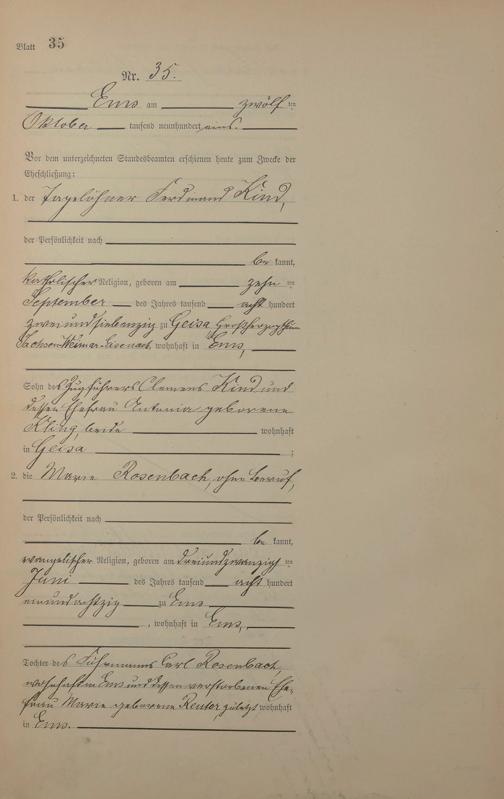 Blatt 35
Nr. 35.
Ems am zwölf ten
Oktober tausend neunhundert eins.
Vor dem unterzeichneten Standesbeamten erschienen heute zum Zwecke der
Eheschließung:
1. der Tagelöhner Ferdinand Kind,
der Persönlichkeit nach
be kannt,
katholischer Religion, geboren am zehn ten
September des Jahres tausend acht hundert
zweiundsiebenzig zu Geisa, Großherzogthum
Sachsen-Weimar-Eisenach, wohnhaft in Ems,
Sohn des Zugführers Clemens Kind und
dessen Ehefrau Antonia geborene
Kling, beide wohnhaft
in Geisa ;
2. die Marie Rosenbach, ohne Beruf,
der Persönlichkeit nach
be kannt,
evangelischer Religion, geboren am dreiundzwanzig ten
Juni des Jahres tausend acht hundert
einundachtzig zu Ems
, wohnhaft in Ems,
Tochter des Fuhrmanns Carl Rosenbach,
wohnhaft in Ems und dessen verstorbenen Ehe-
frau Marie geborene Reuter, zuletzt wohnhaft
in Ems.